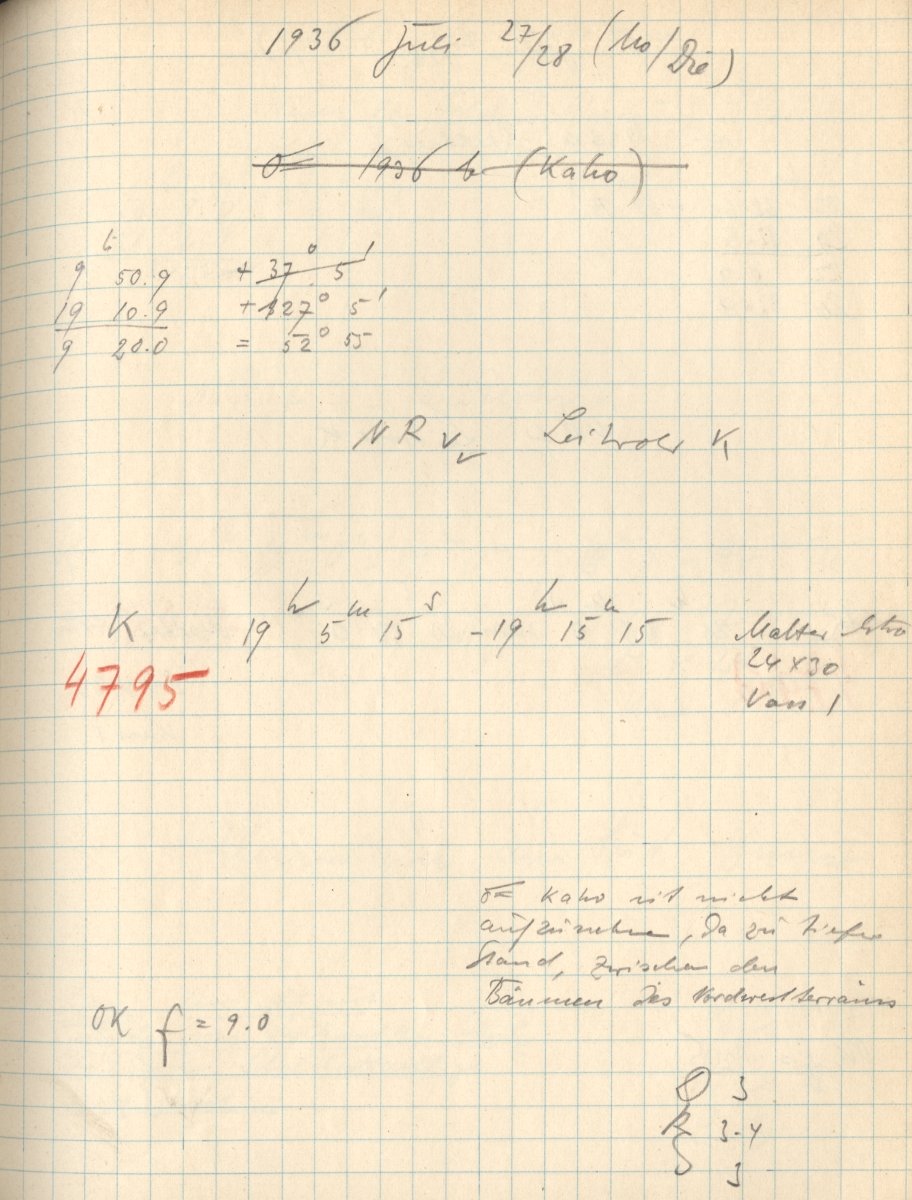 1936 Juli 27/28 (Mo/Die)
☄ 1936 b (Kaho)
h
9 50.9 + 37° 5'
19 10.9 + 127° 5'
9 20.0 = 52° 55
NR
K 19h 5m 15s - 19h 15m 15 Matter
4795 24 x 30
Von 1
☄ Kaho ist nicht
aufzunehmen, da zu tiefer
Stand, zwischen den
Bäumen des Nordwestterrains
OK f = 9.0
D 3
R 3-4
S 3